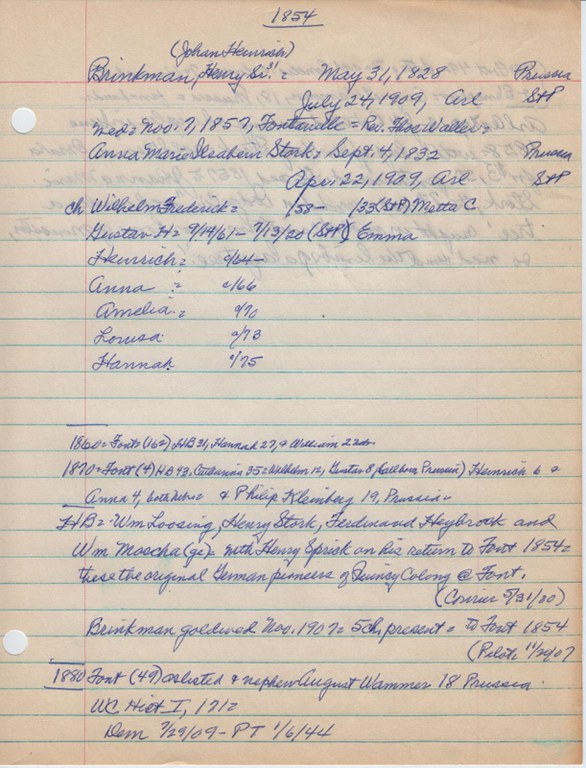 1854
(Johan Heinrich)
Brinkman, Henry Sr. 31 = May 31, 1828 Prussia
July 24, 1909, Arl StP
wed = Nov. 7, 1857, Fontanelle = Rev.
Anna Maria Ilsabein Stork = Sept. 4, 1832 Prussia
Apr. 22, 1909, Arl StP
ch Wilhelm Frederick = /58 - /33 (StP) Metta C
Gustav H = 9/14/61 - 7/13/20 (StP) Emma
Heinrich = c/64 -
Anna = c/66
Amelia = c/70
Louisa c/73
Hannah c/75
1860 = Font (162) HB 31, Hannah 27, & William 2 Neb.
1870 = Font (4) HB 43, 35 = Wilhelm 12, Gustav 8, Prussia) Heinrich 6 &
Anna 4, both Nebr = & Philip Kleinberg 19, Prussia =
HB = Wm Loosing, Henry Stork, Ferdinand Heybrook and
Wm Moscha (gs) = with Henry Sprick on his return to Font 1854 =
these the original German pioneers of Quincy Colony @ Font.
(Courier 5/31/20)
Brinkman goldwed Nov. 1907 = 5 ch present = to Font 1854
(Pilot = 11/ /07
1880 Font (49) as listed & nephew August Wammer 18 Prussia.
WC Hist I, 171 =
Dem 7/29/09 - PT 1/6/44